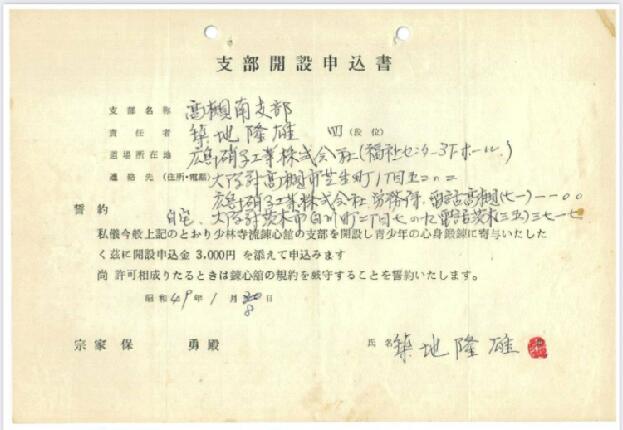 支部開設申込書
支部名称 高槻南支部
責任者 築地隆雄 四(段位)
道場所在地 広島硝子工業株式会社(福祉センター3Fホール)
連絡先(住所・電話) 大阪府高槻市芝生町1丁目
硝子工業株式会社 労務係 電話高槻(七一)一一〇〇
誓約
自宅、大阪府茨木市白川町二丁目七の九 電話茨木(三五)三七一七
私儀今般上記のとおり少林寺流錬心舘の支部を開設し青少年の心身鍛錬に寄与いたした
く茲に開設申込金 3,000円 を添えて申込みます
尚 許可相成りたるときは錬心舘の規約を厳守することを誓約いたします。
昭和49年1月 8日
宗家保 勇殿
氏名 築地隆雄